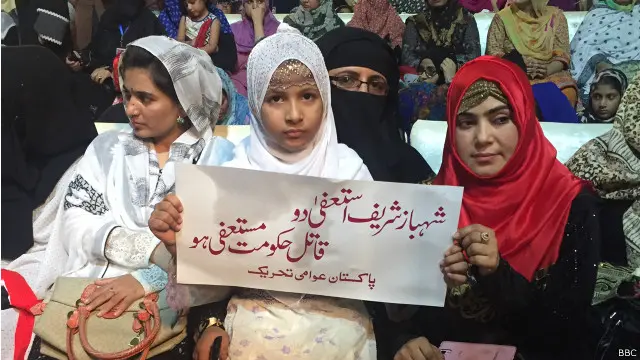 شہباز شریف استعفیٰ دو
قاتل حکومت مستعفی ہو
پاکستان عوامی تحریک
BBC